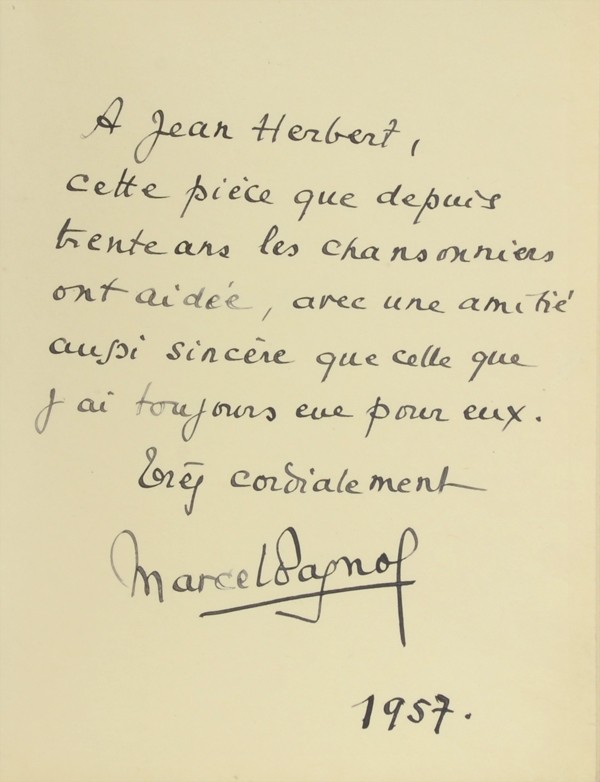 A Jean Herbert,
cette pièce que depuis
trente ans les chansonniers
ont aidée, avec une amitié
aussi sincère que celle que
j'ai toujours eue pour eux.
Très cordialement
Marcel Pagnol
1957.